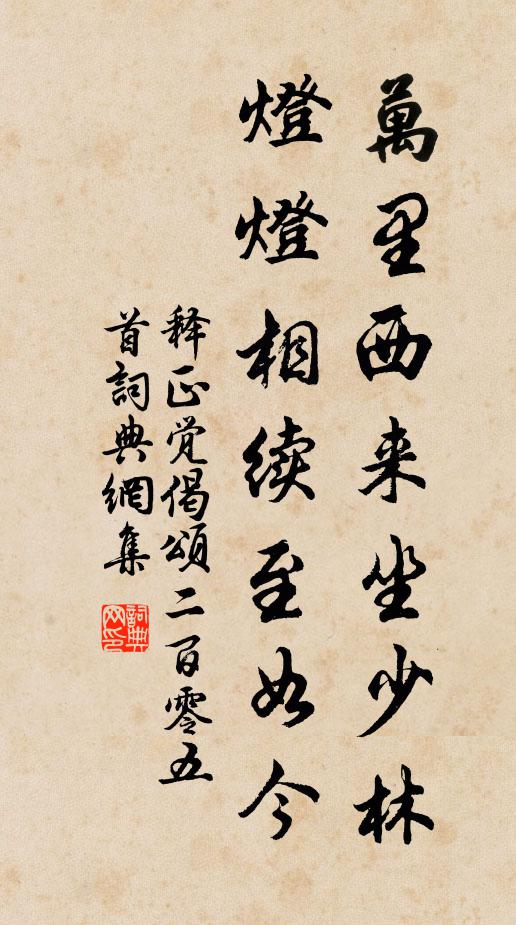 萬里西来坐少林
燈燈相续至如今
释正觉偈頌二百零五
首詞典網集
詞典网印